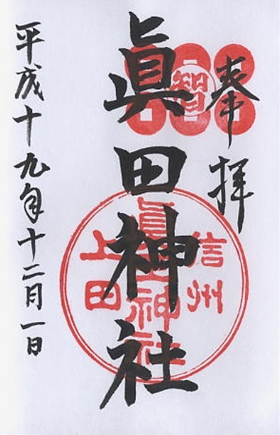 奉拝
眞田神社
平成十九年十二月一日
智
信州
眞田神社
上田